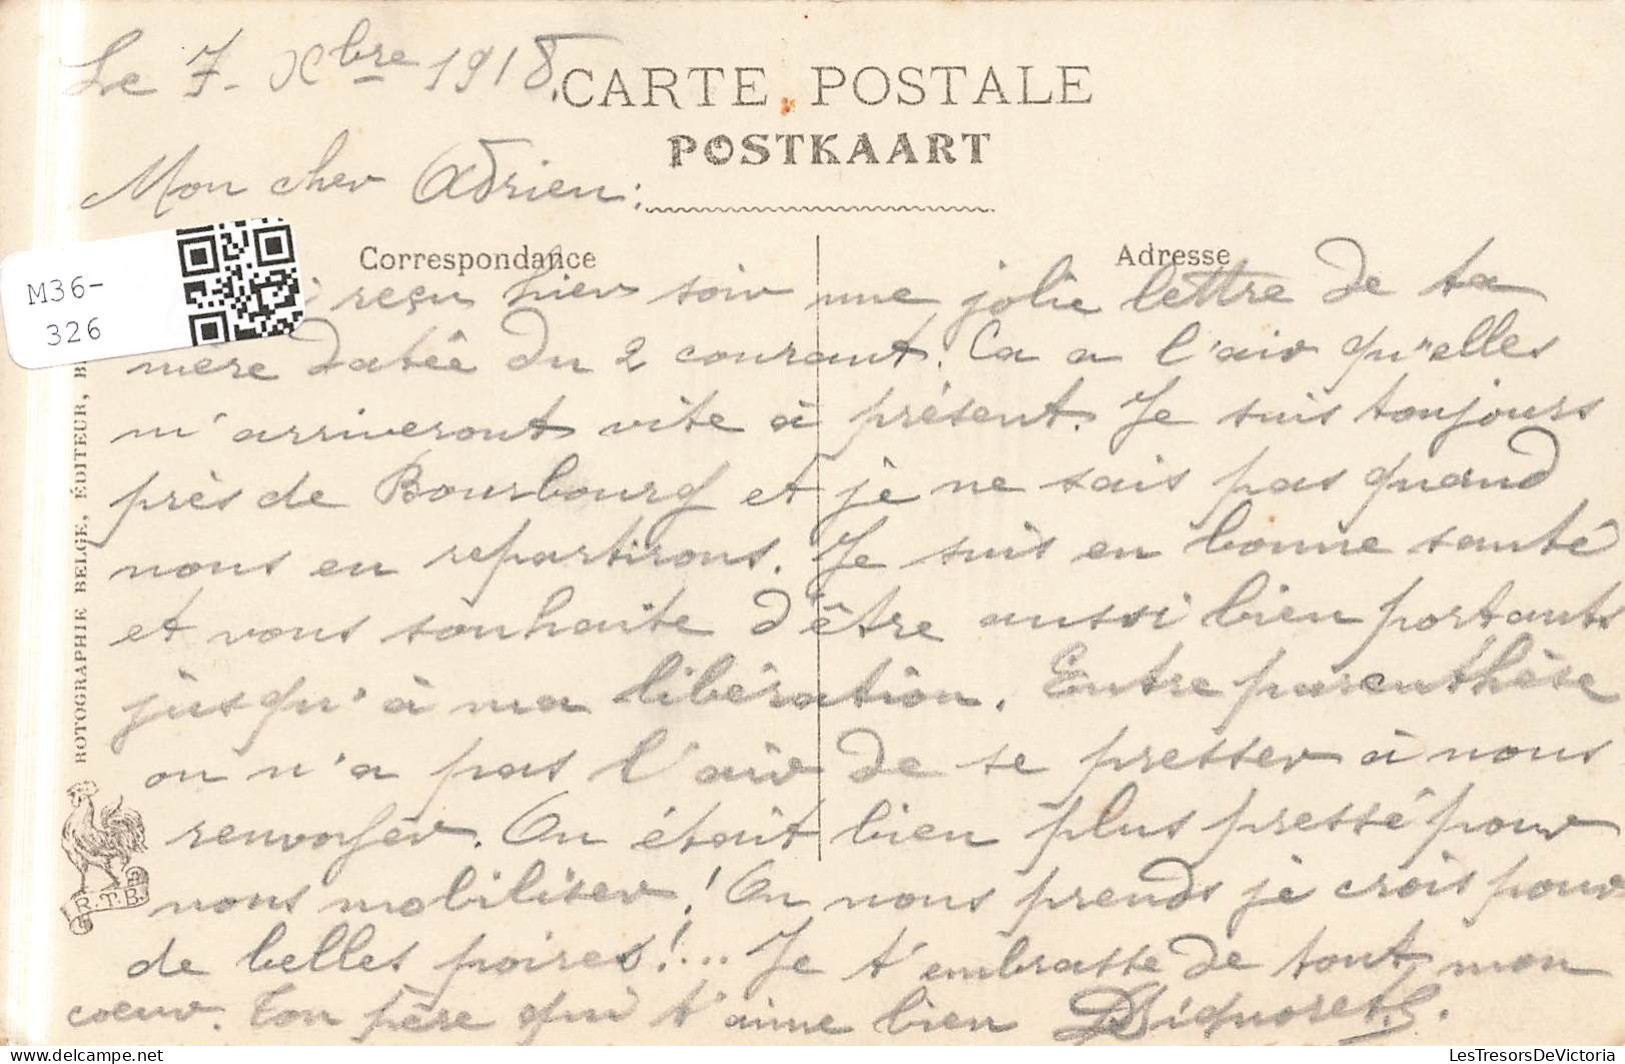 Le 7 - Xbre 1918.
CARTE POSTALE
POSTKAART
Mon cher Adrien :
Correspondance
Adresse
M36-
326
i reçu hier soir une jolie lettre de ta
mère datée du 2 courant. Ca a l'air qu'elles
m'arriveront vite à présent. Je suis toujours
près de Bourbourg et je ne sais pas quand
nous en repartirons. Je suis en bonne santé
et vous souhaite d'être aussi bien portants
jusqu'à ma libération. Entre parenthèse
on n'a pas l'air de se presser à nous
renvoyer. On était bien plus pressé pour
nous mobiliser ! On nous prends je crois pour
de belles poires !... Je t'embrasse de tout mon
coeur. Ton père qui t'aime bien
ROTOGRAPHIE BELGE, ÉDITEUR, B
R.T.B.
LesTresorsDeVictoria